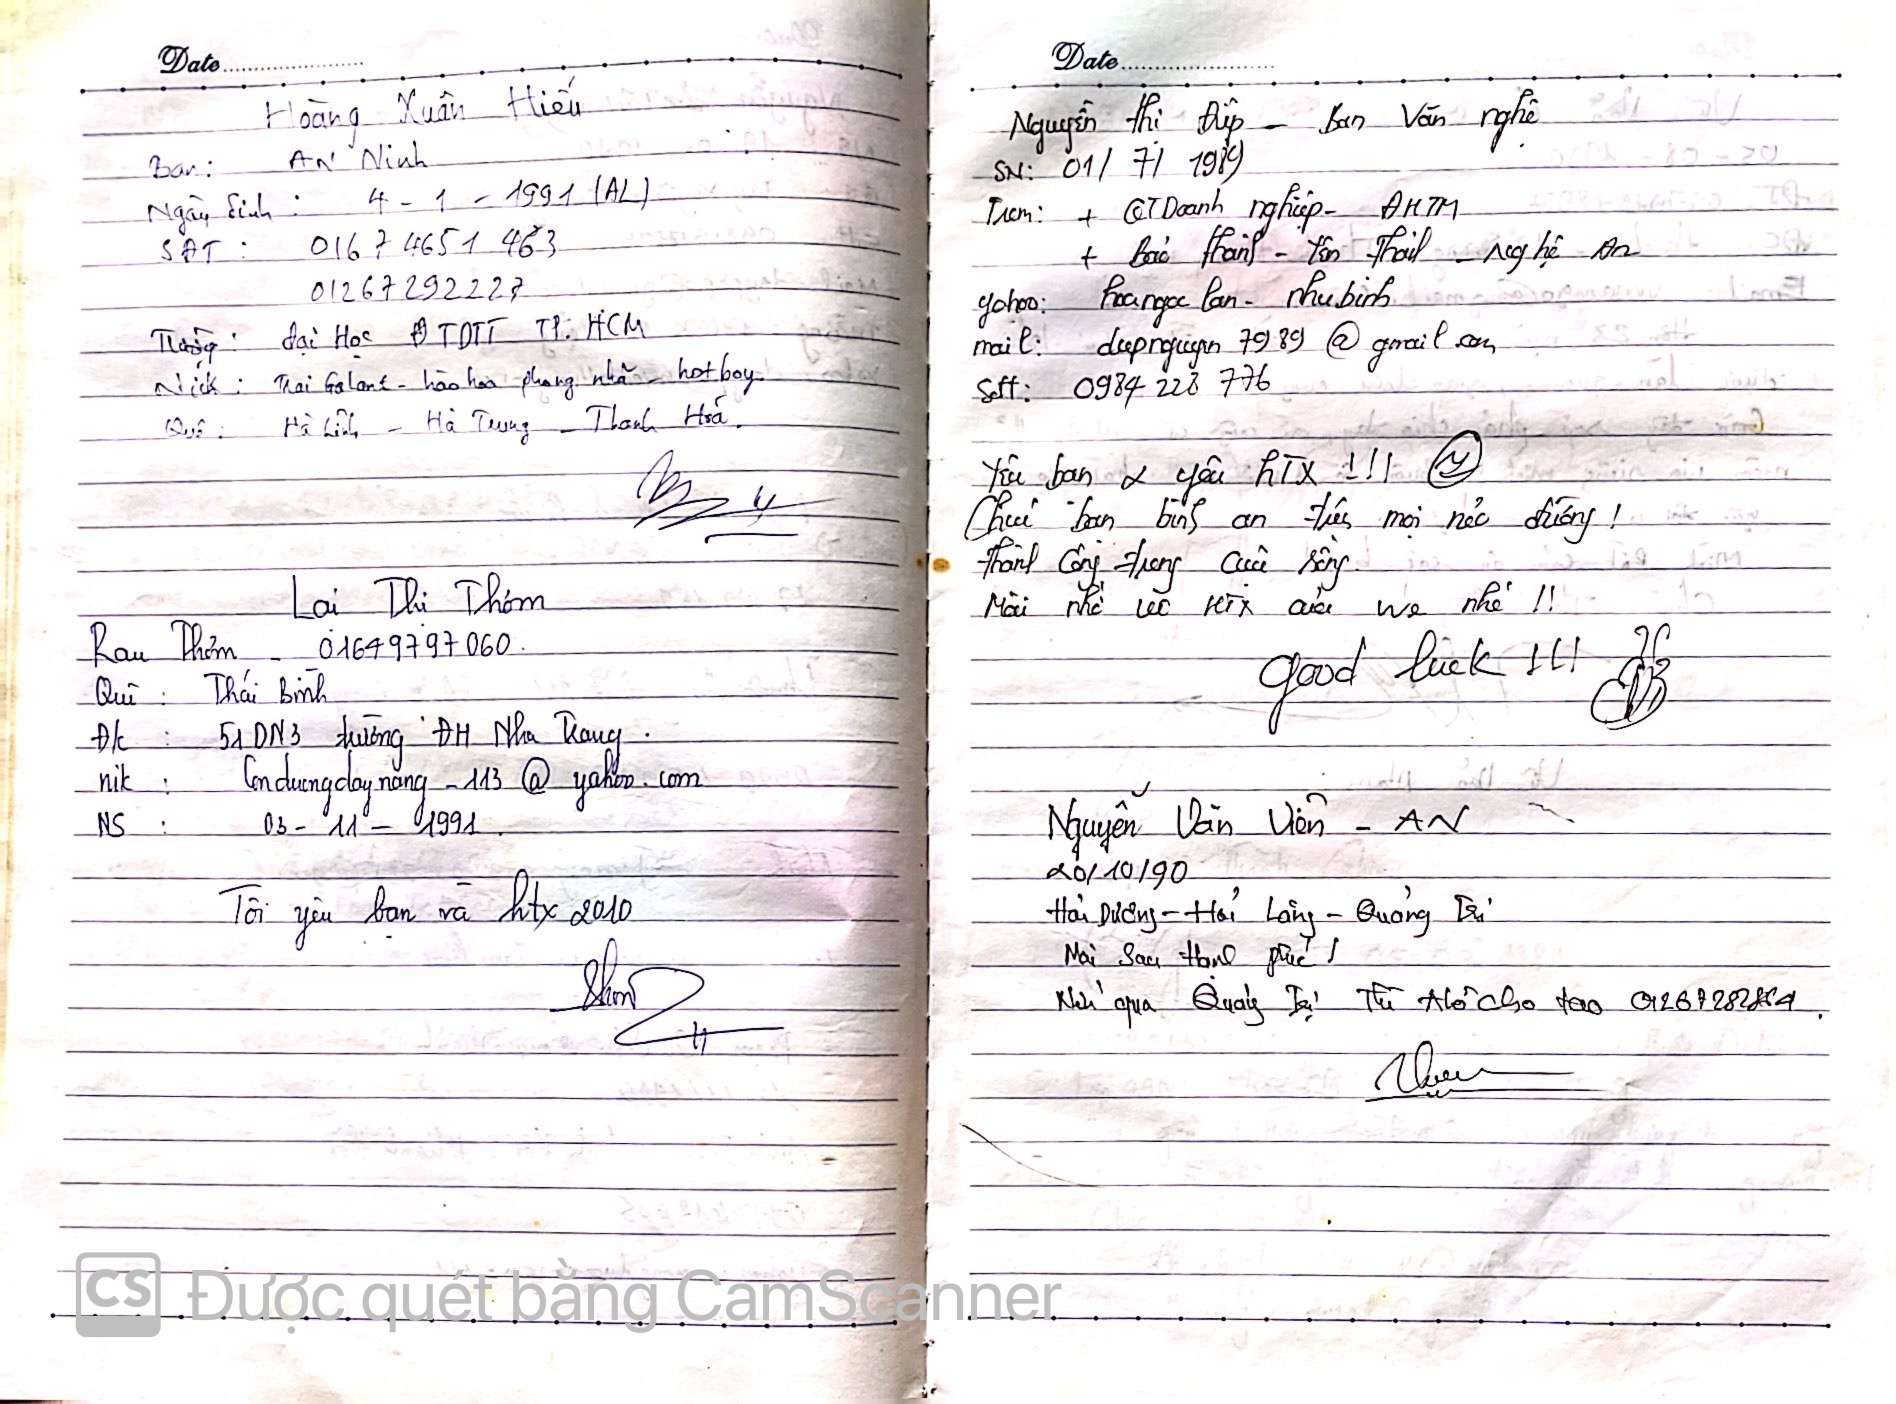 Date
Hoàng Xuân Hiếu
Ban: AN Ninh
Ngày Sinh: 4 - 1 - 1991 (AL)
SĐT: 01674651463
01267292227
Trường: Đại Học TDTT TP. HCM
Nick: Trai Galant - hào hoa phong nhã - hotboy
Quê: Hà Lĩnh - Hà Trung - Thanh Hoá.
Lại Thị Thơm
Rau Thơm - 01649797060.
Quê: Thái Bình
Đ/c: 51DN3 trường ĐH Nha Trang.
nik: Conduongdaynang_113@yahoo.com
NS: 03 - 11 - 1991.
Tôi yêu bạn và htx 2010
Date
Nguyễn Thị Điệp - Ban Văn nghệ
SN: 01/7/1989
Trem: + QTDoanh nghiệp - ĐHTM
+ Bảo Thành - Yên Thành - Nghệ An
yahoo: hoangoclan_nhubinh
mail: diepnguyen7989@gmail.com
Sđt: 0984 228 776
Yêu bạn & yêu HTX !!!
Chúc bạn bình an trên mọi nẻo đường!
Thành Công trong cuộc sống.
Mãi nhớ về HTX của we nhé!!
good luck !!!
Nguyễn Văn Viễn - AN
20/10/90
Hải Dương - Hải Lăng - Quảng Trị
Mai sau Hạnh phúc!
Nhớ qua Quảng Trị Thì Alô cho tao
CS Được quét bằng CamScanner